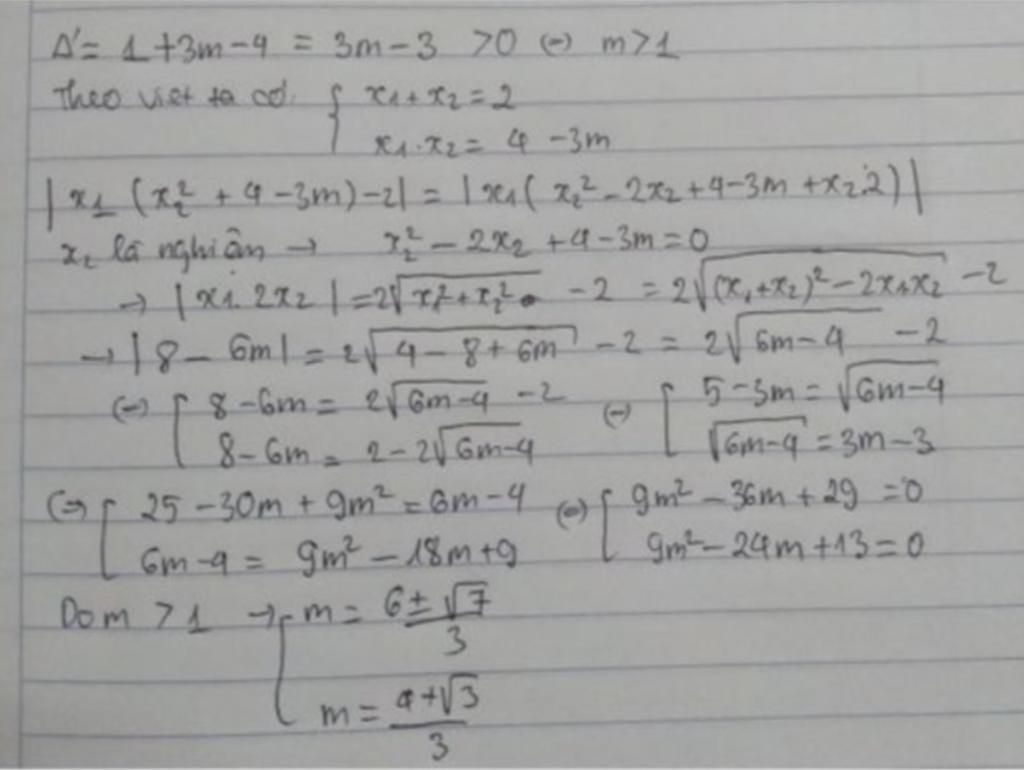 Δ' = 1 + 3m - 4 = 3m - 3 > 0 (=) m > 1
Theo viet ta có { x₁ + x₂ = 2
x₁.x₂ = 4 - 3m
|x₁ (x₂² + 4 - 3m) - 2| = |x₁ (x₂² - 2x₂ + 4 - 3m + x₂2)|
x₂ là nghiện → x₂² - 2x₂ + 4 - 3m = 0
→ |x₁.2x₂| = 2√(x₁² + x₂²) - 2 = 2√((x₁ + x₂)² - 2x₁x₂) - 2
→ |8 - 6m| = 2√(4 - 8 + 6m) - 2 = 2√(6m - 4) - 2
(=) [ 8 - 6m = 2√(6m - 4) - 2 (=) [ 5 - 3m = √(6m - 4)
8 - 6m = 2 - 2√(6m - 4) √(6m - 4) = 3m - 3
(=) [ 25 - 30m + 9m² = 6m - 4 (=) [ 9m² - 36m + 29 = 0
6m - 4 = 9m² - 18m + 9 9m² - 24m + 13 = 0
Do m > 1 → [ m = (6 ± √7)/3
m = (4 + √3)/3